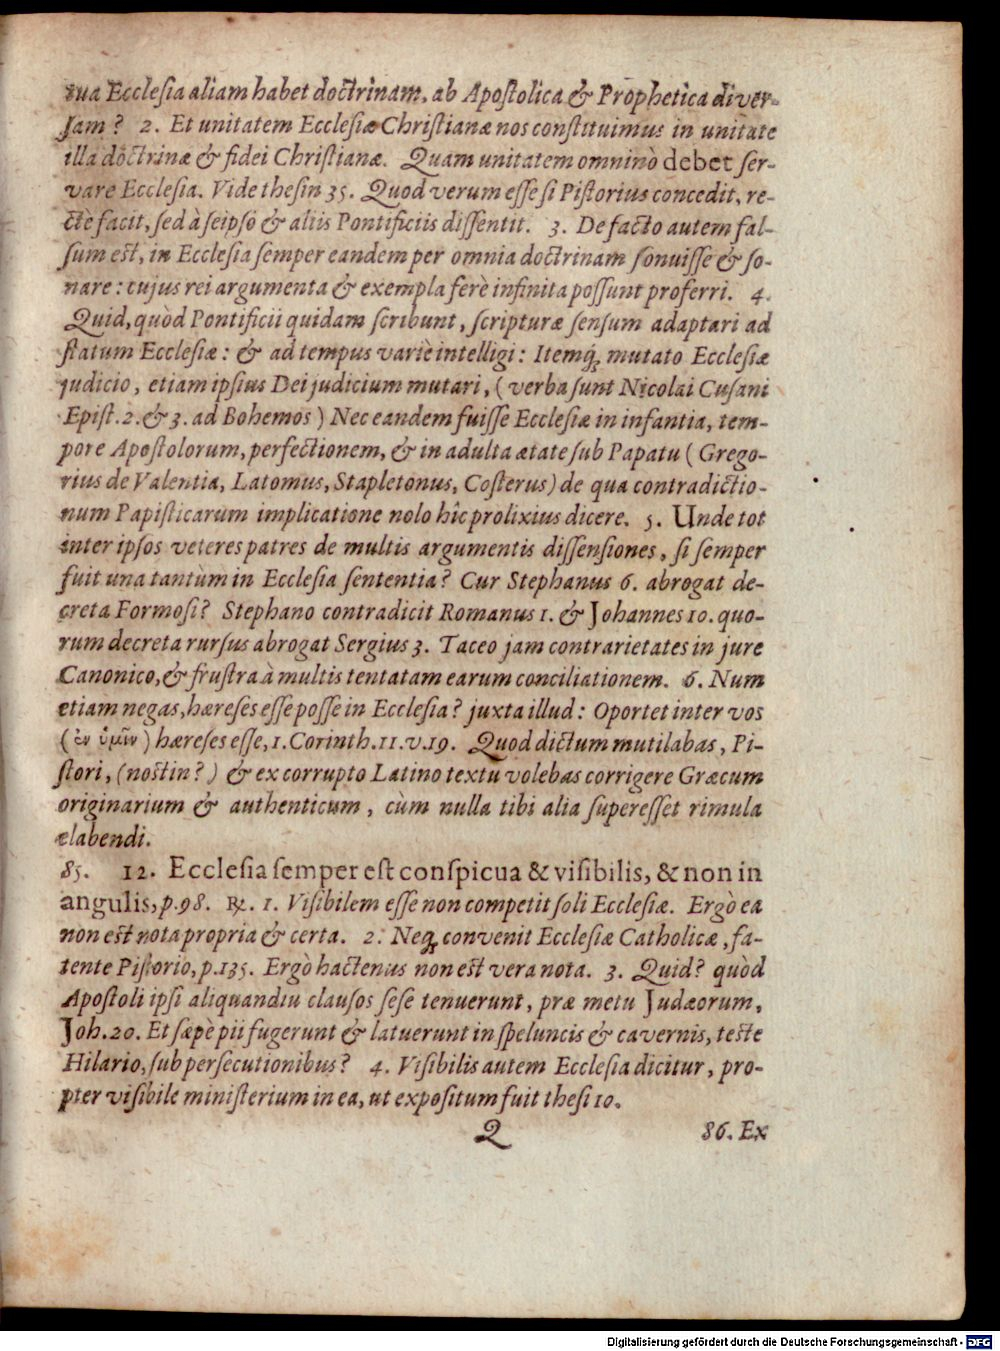 tua Ecclesia aliam habet doctrinam, ab Apostolica & Prophetica diver-
sam? 2. Et unitatem Ecclesiæ Christianæ nos constituimus in unitate
illa doctrinæ & fidei Christianæ. Quam unitatem omninò debet ser-
vare Ecclesia. Vide thesin 35. Quod verum esse si Pistorius concedit, re-
ctè facit, sed à seipso & aliis Pontificiis dissentit. 3. De facto autem fal-
sum est, in Ecclesia semper eandem per omnia doctrinam sonuisse & so-
nare: cujus rei argumenta & exempla ferè infinita possunt proferri. 4.
Quid, quòd Pontificii quidam scribunt, scripturæ sensum adaptari ad
statum Ecclesiæ: & ad tempus variè intelligi: Itemq́; mutato Ecclesiæ
judicio, etiam ipsius Dei judicium mutari, (verba sunt Nicolai Cusani
Epist. 2. & 3. ad Bohemos) Nec eandem fuisse Ecclesiæ in infantia, tem-
pore Apostolorum, perfectionem, & in adulta ætate sub Papatu (Grego-
rius de Valentia, Latomus, Stapletonus, Costerus) de qua contradictio-
num Papisticarum implicatione nolo hîc prolixius dicere. 5. Unde tot
inter ipsos veteres patres de multis argumentis dissensiones, si semper
fuit una tantùm in Ecclesia sententia? Cur Stephanus 6. abrogat de-
creta Formosi? Stephano contradicit Romanus 1. & Johannes 10. quo-
rum decreta rursus abrogat Sergius 3. Taceo jam contrarietates in jure
Canonico, & frustra à multis tentatam earum conciliationem. 6. Num
etiam negas, hæreses esse posse in Ecclesia? juxta illud: Oportet inter vos
(ἐν ὑμῖν) hæreses esse, 1. Corinth. 11. v. 19. Quod dictum mutilabas, Pi-
stori, (nostin?) & ex corrupto Latino textu volebas corrigere Græcum
originarium & authenticum, cùm nulla tibi alia superesset rimula
elabendi.
85. 12. Ecclesia semper est conspicua & visibilis, & non in
angulis, p. 98. ℞. 1. Visibilem esse non competit soli Ecclesiæ. Ergò ea
non est nota propria & certa. 2. Neq́; convenit Ecclesiæ Catholicæ, fa-
tente Pistorio, p. 135. Ergò hactenus non est vera nota. 3. Quid? quòd
Apostoli ipsi aliquandiu clausos sese tenuerunt, præ metu Judæorum,
Joh. 20. Et sæpè pii fugerunt & latuerunt in speluncis & cavernis, teste
Hilario, sub persecutionibus? 4. Visibilis autem Ecclesia dicitur, pro-
pter visibile ministerium in ea, ut expositum fuit thesi 10.
Q 86. Ex
Digitalisierung gefördert durch die Deutsche Forschungsgemeinschaft - DFG